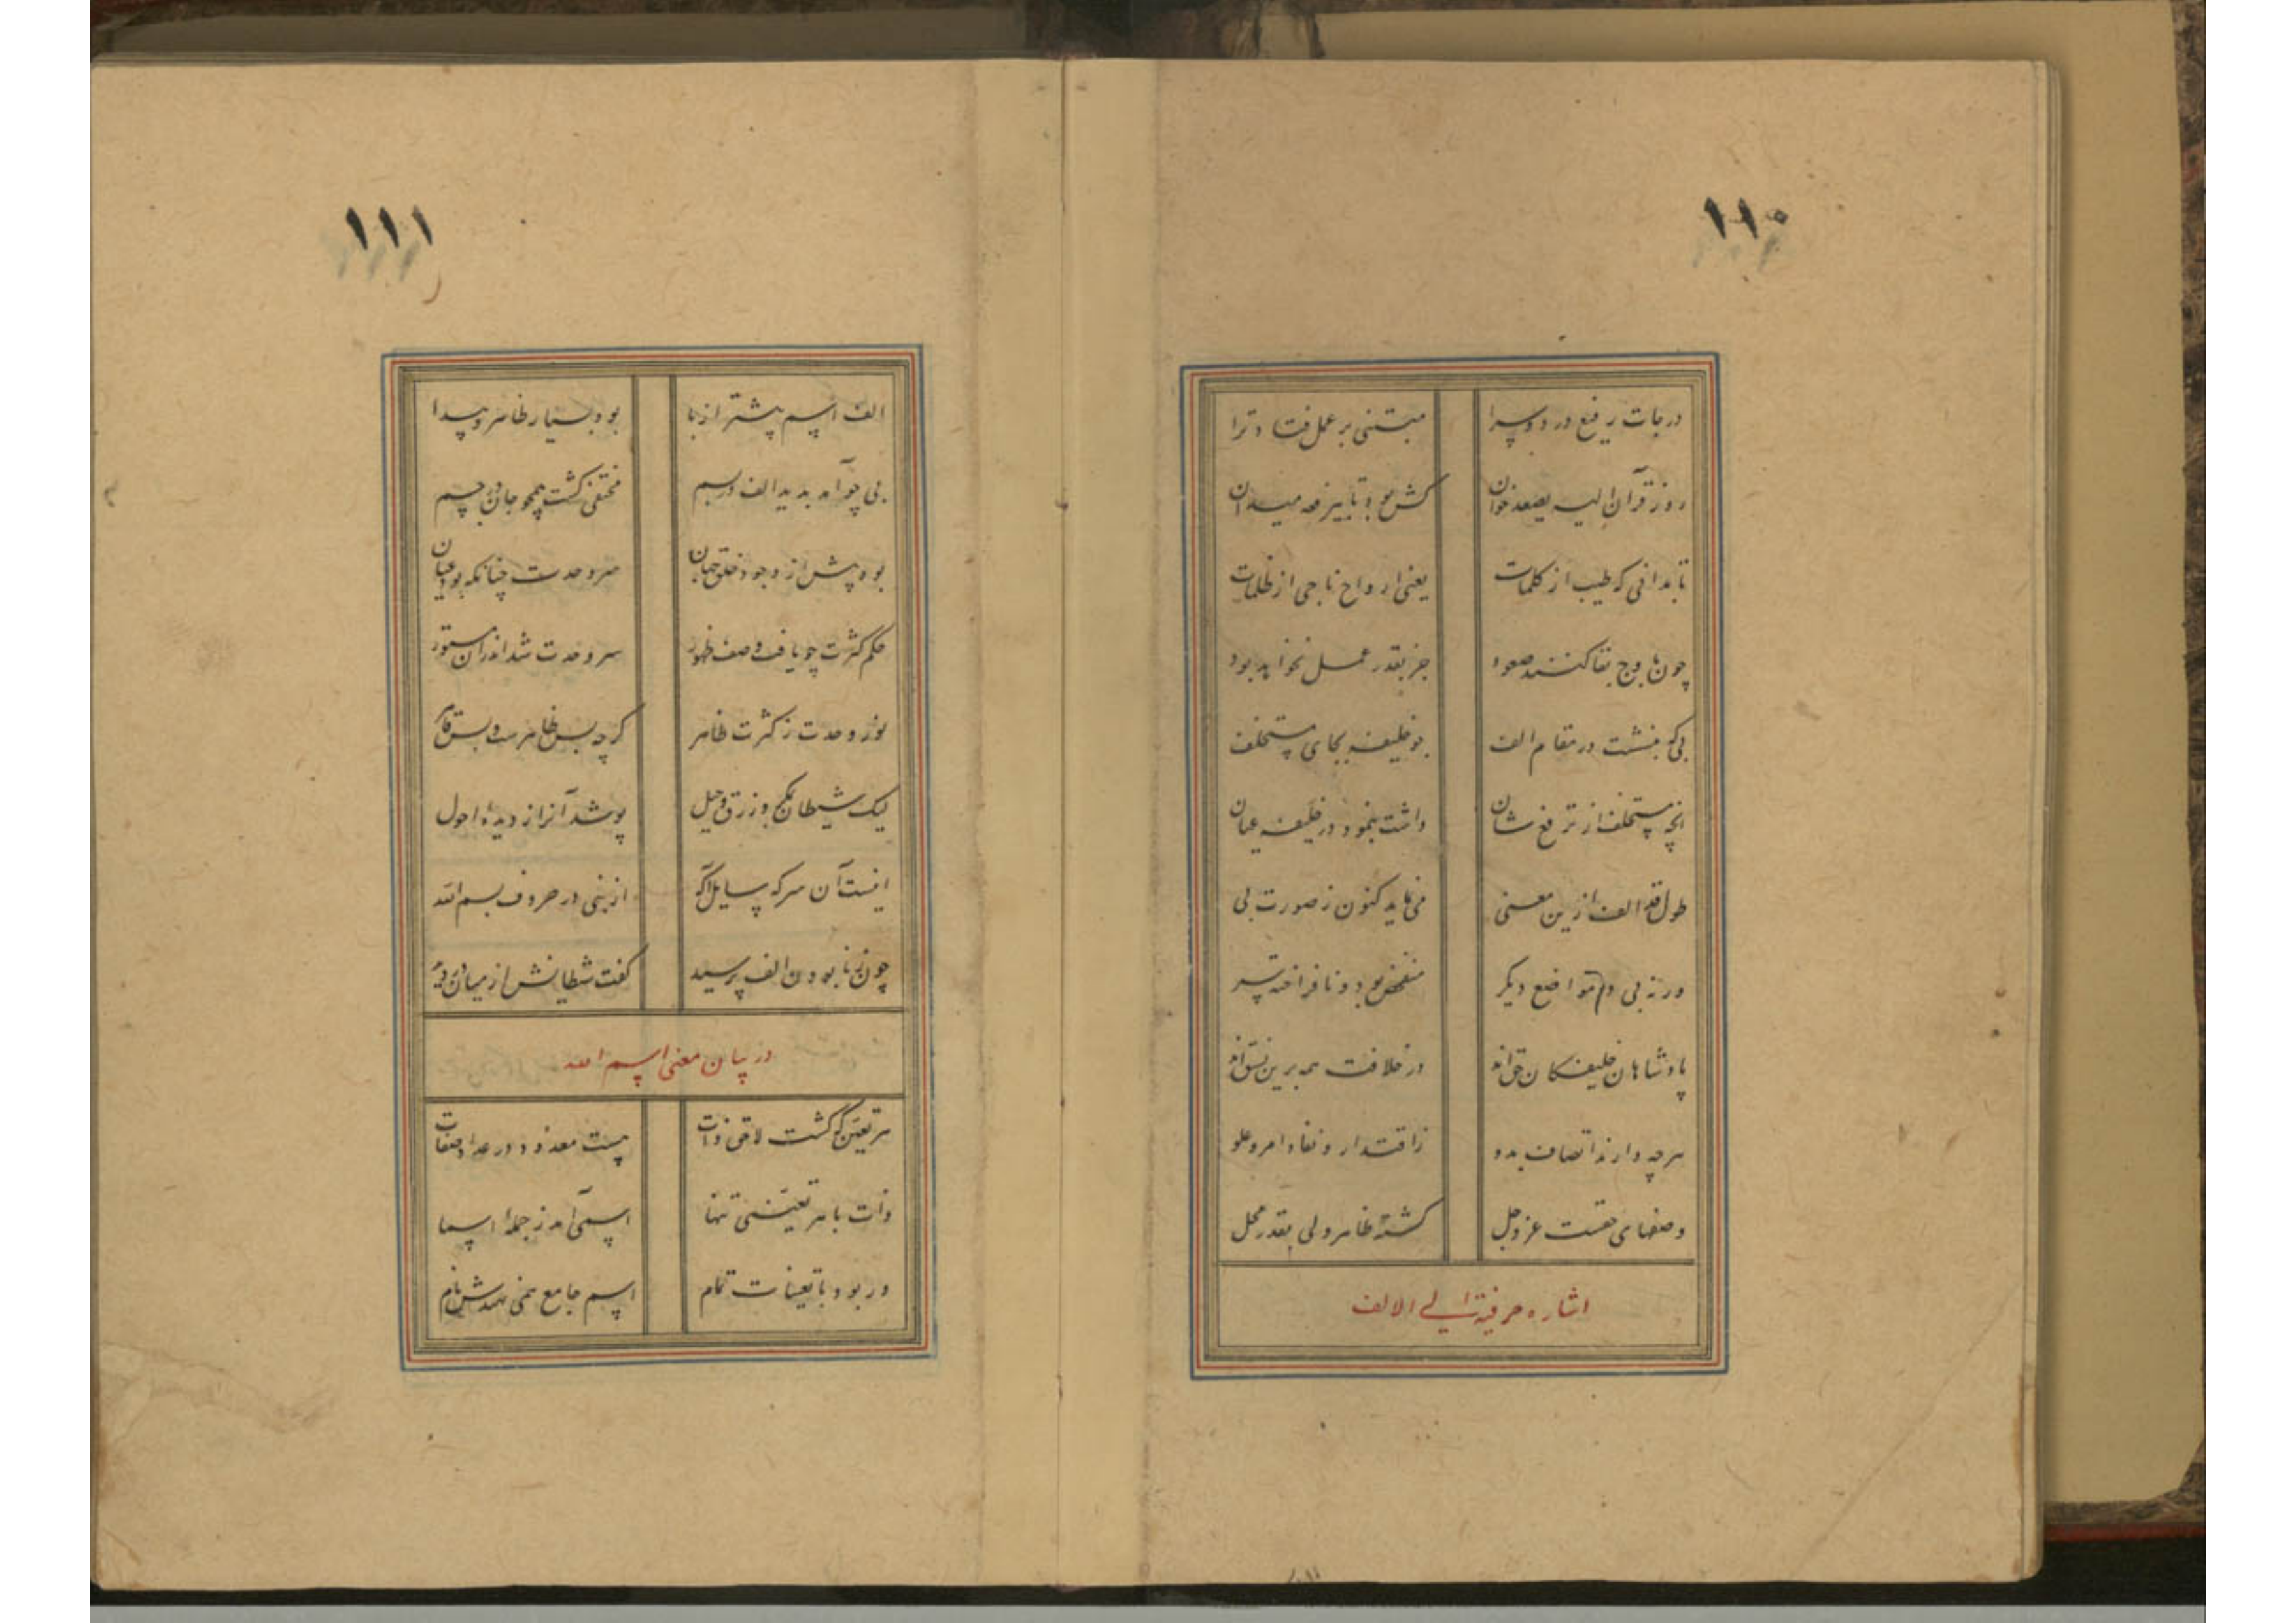 ۱۱۰
درجات رفیع در دو سرا مبتنی بر عمل فتاد ترا
رو ز قرآن الیه یصعد خوان کش بود تا بیرفعه میدان
تا بدانی که طیب از کلمات یعنی ارواح ناجی از ظلمات
چون باوج بقا کنند صعود جز بقدر عمل نخواهد بود
بی که بنشست در مقام الف بو خلیفه بجای مستخلف
انچه مستخلف از ترفع شان داشت بنمود در خلیفه عیان
طول قد الف ازین معنی می نماید کنون ز صورت بی
ورنه بی در مواضع دیگر منخفض بود و نافراخته سر
پادشاهان خلیفکان حق اند در خلافت همه برین نسق اند
هرچه دارند اتصاف بدو ز اقتدار و نفاد امر و علو
وصفهای حقست عز وجل کشته ظاهر ولی بقدر محل
اشاره حرفیة الی الالف
۱۱۱
الف اسم پیشتر از با بود بسیار ظاهر و پیدا
بی چو آمد پدید الف در بسم مختفی کشت همچو جان در جسم
بود پیش از وجود خلق جهان سر وحدت چنانکه بود عیان
حکم کثرت چو یافت وصف ظهور سر وحدت شد اندران مستور
نور وحدت ز کثرت ظاهر کرچه بس ظاهرست و بس قاهر
لیک شیطان بمکر و زرق و حیل پوشد آنرا ز دیدهٔ احول
اینست آن سر که سایل آکه از نبی در حروف بسم الله
چون ز نابودن الف پرسید کفت شیطانش از میان دزدید
در بیان معنی اسم الله
هر تعین که کشت لاحق ذات هست معدود در عداد صفات
ذات با هر تعینی تنها اسمی آمد ز جملهٔ اسما
ور بود با تعینات تمام اسم جامع همی نهندش نام